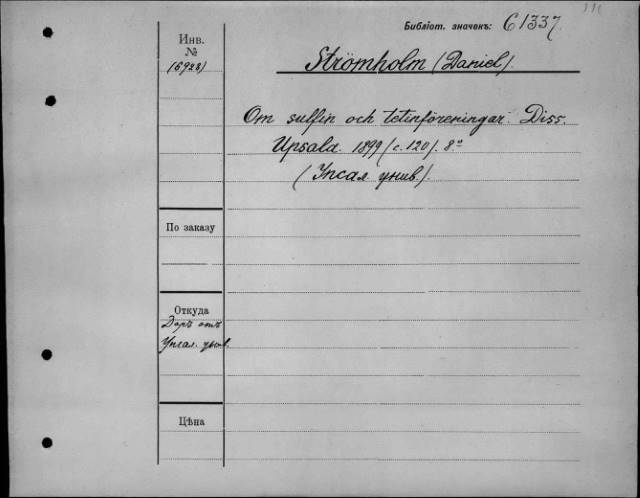 Библіот. значекъ: 61337.
Инв.
№
(5928)
Strömholm (Daniel).
Om sulfin och tetinföreningar. Diss.
Upsala. 1899 (с. 120). 8º
(Упсал. унив.).
По заказу
Откуда
Даръ отъ
Упсал. унив.
Цѣна